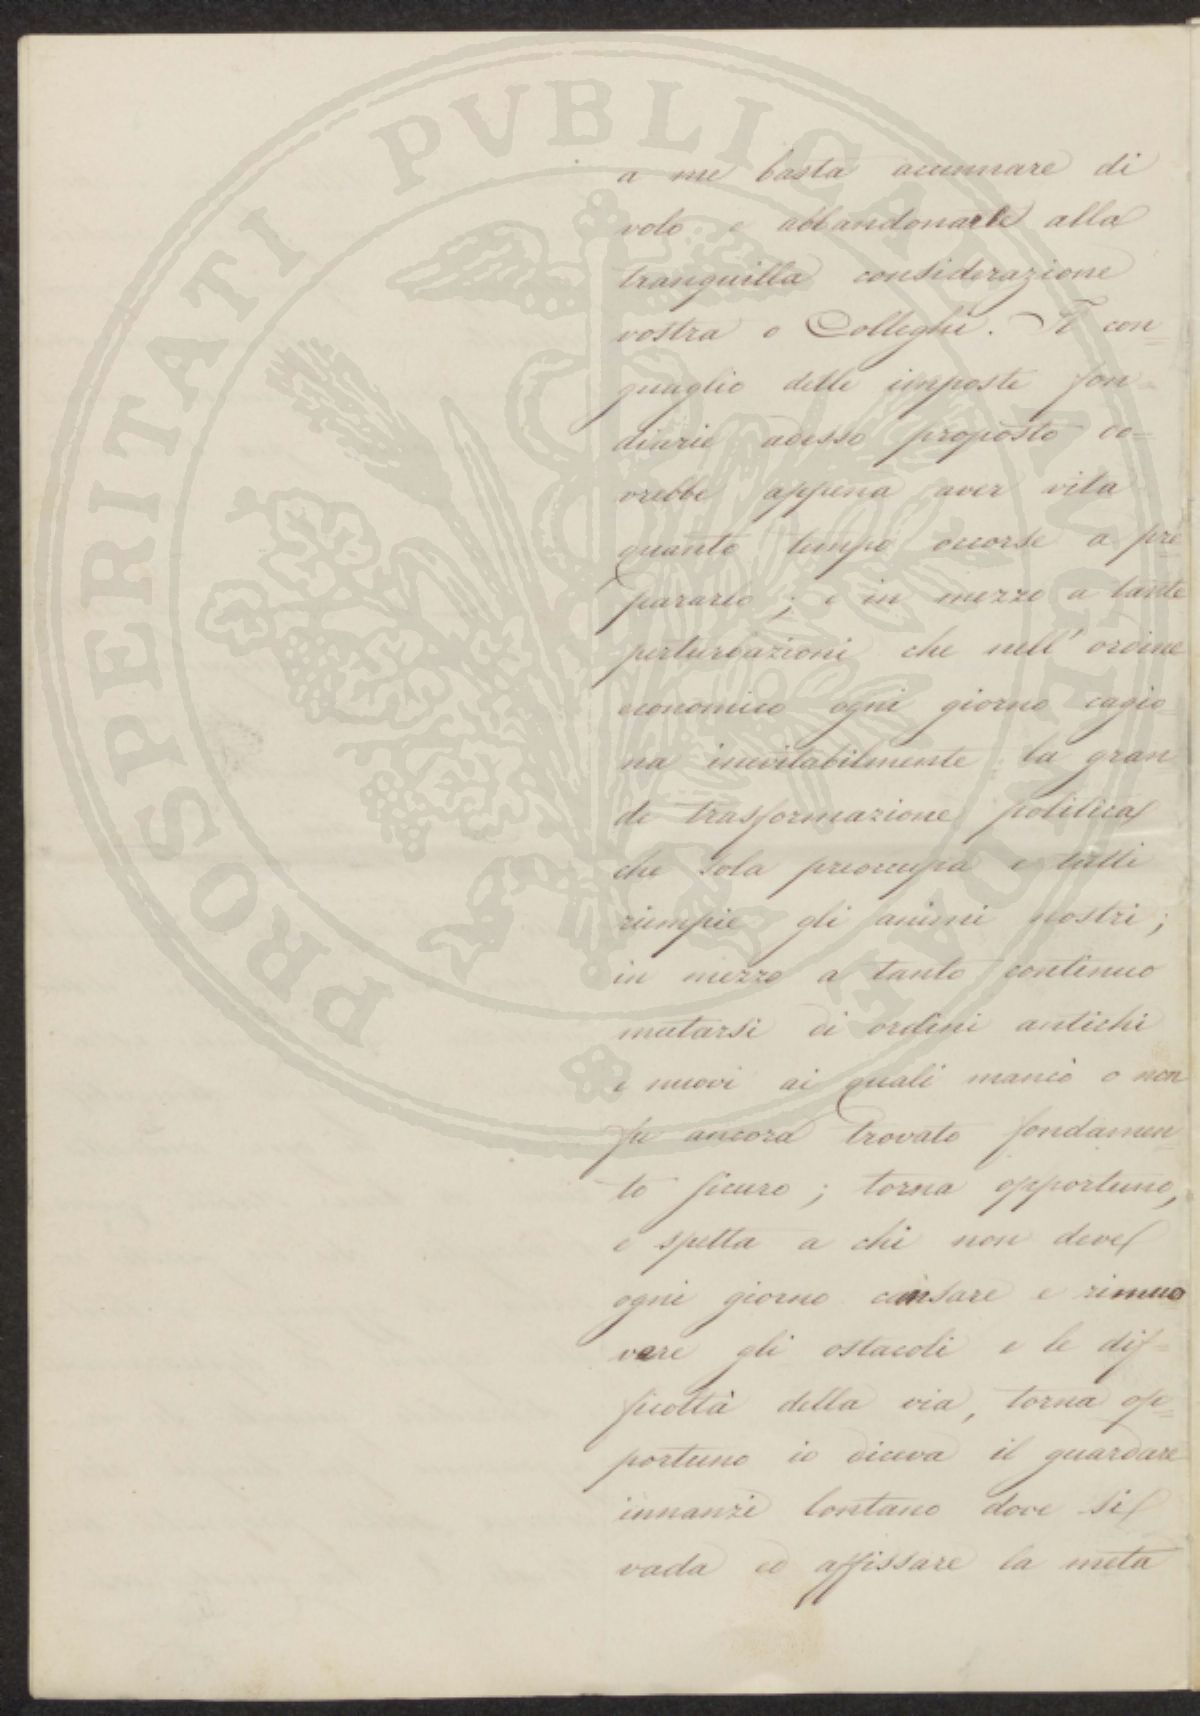 a me basta accennare di
volo e abbandonarle alla
tranquilla considerazione
vostra o Colleghi. Il con=
guaglio delle imposte fon=
diarie adesso proposto do=
vrebbe appena aver vita
quanto tempo occorse a pre
pararlo; e in mezzo a tante
perturbazioni che nell'ordine
economico ogni giorno cagio=
na inevitabilmente la gran
de trasformazione politica
che sola preoccupa e tutti
riempie gli animi nostri;
in mezzo a tanto continuo
mutarsi di ordini antichi
e nuovi ai quali mancò o non
fu ancora trovato fondamen=
to sicuro; torna opportuno,
e spetta a chi non deve
ogni giorno cansare e rimuo
vere gli ostacoli e le dif=
ficoltà della via, torna op=
portuno io diceva il guardare
innanzi lontano dove si
vada ed affissare la meta
PROSPERITATI PVBLICAE AVGENDAE